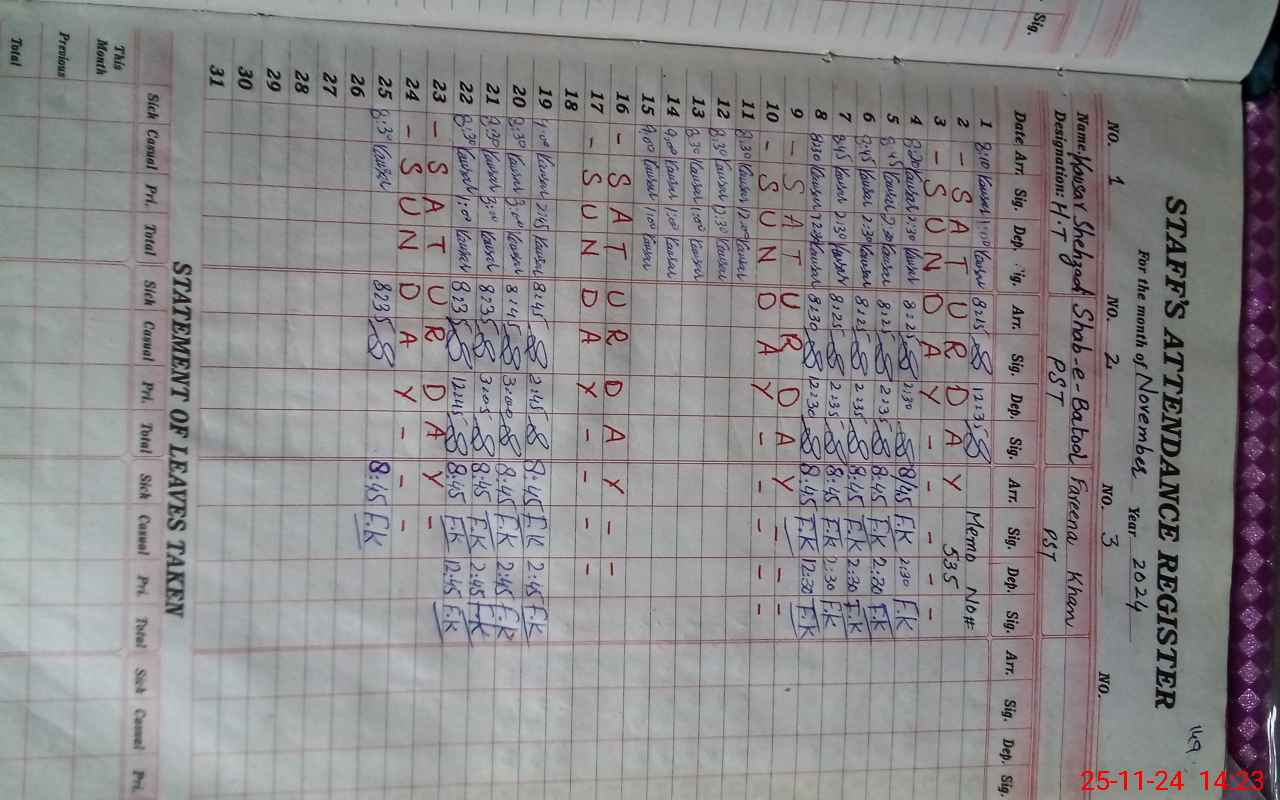 Sig.
149
STAFF'S ATTENDANCE REGISTER
For the month of November Year 2024
NO. 1 NO. 2 NO. 3 NO.
Name: Kousar Shehzad Shab-e-Batool Fareena Khan
Designation: H.T PST PST
Date Arr. Sig. Dep. Sig. Arr. Sig. Dep. Sig. Arr. Sig. Dep. Sig. Arr. Sig. Dep. Sig.
1 8:10 Kausar 1:00 Kausar 8:15 12:35 Memo No#
2 - S A T U R D A Y 535
3 - S U N D A Y - - - -
4 8:30 Kausar 2:30 Kausar 8:25 2:30 8:45 F.K 2:30 F.K
5 8:45 Kausar 2:30 Kausar 8:25 2:35 8:45 F.K 2:30 F.K
6 8:45 Kausar 2:30 Kausar 8:25 2:35 8:45 F.K 2:30 F.K
7 8:45 Kausar 2:30 Kausar 8:25 2:35 8:45 F.K 2:30 F.K
8 8:30 Kausar 12:30 Kausar 8:30 12:30 8:45 F.K 12:30 F.K
9 - S A T U R D A Y - - -
10 - S U N D A Y - - - -
11 8:30 Kausar 12:00 Kausar
12 8:30 Kausar 12:30 Kausar
13 8:30 Kausar 1:00 Kausar
14 9:00 Kausar 1:00 Kausar
15 9:00 Kausar 1:00 Kausar
16 - S A T U R D A Y - -
17 - S U N D A Y - - - -
18
19 9:00 Kausar 2:45 Kausar 8:45 2:45 8:45 F.K 2:45 F.K
20 8:30 Kausar 3:00 Kausar 8:45 3:00 8:45 F.K 2:45 F.K
21 8:30 Kausar 3:00 Kausar 8:35 3:05 8:45 F.K 2:45 F.K
22 8:30 Kausar 1:00 Kausar 8:35 12:45 8:45 F.K 12:45 F.K
23 - S A T U R D A Y -
24 - S U N D A Y - - -
25 8:30 Kausar 8:35 8:45 F.K
26
27
28
29
30
31
STATEMENT OF LEAVES TAKEN
Sick Casual Pri. Total Sick Casual Pri. Total Sick Casual Pri. Total Sick Casual Pri.
This Month
Previous
Total
25-11-24 14:23